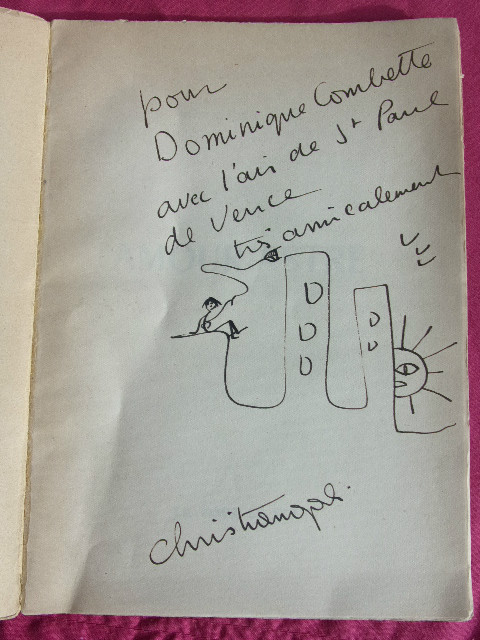 pour
Dominique Combette
avec l'air de St Paul
de Vence
très amicalement